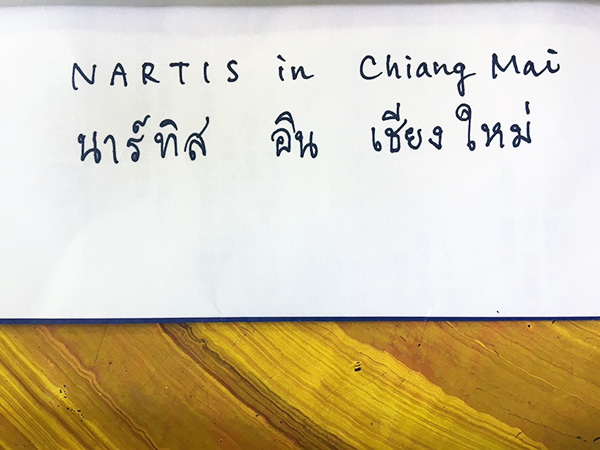 NARTIS in Chiang Mai
นาร์ทิส อิน เชียงใหม่